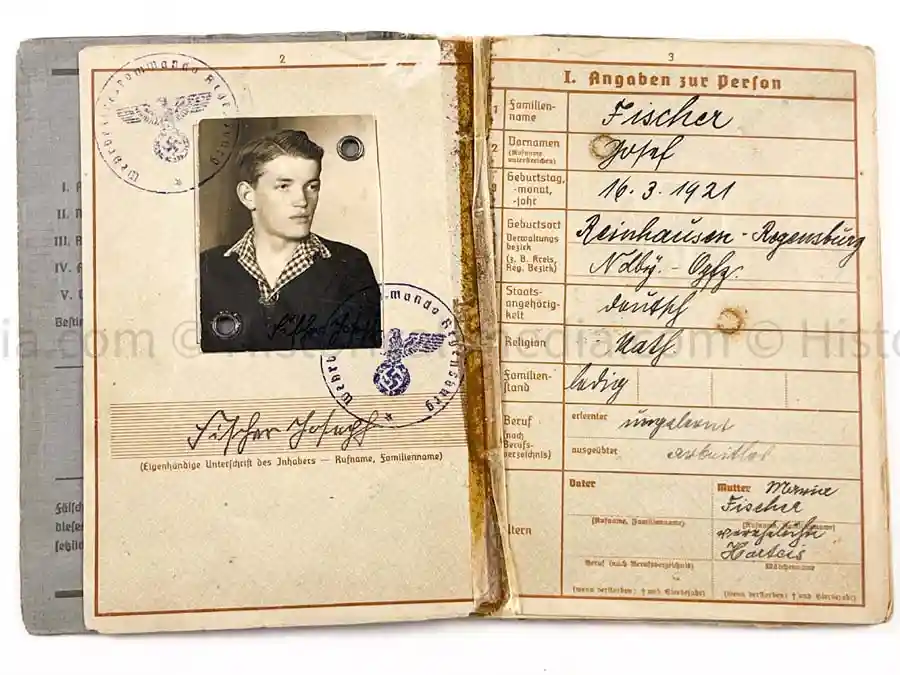 2
Wehrbezirkskommando Regensburg
Wehrbezirkskommando Regensburg
Fischer Joseph
(Eigenhändige Unterschrift des Inhabers — Rufname, Familienname)
I.
II.
III.
IV.
V.
3
I. Angaben zur Person
1 Familien-
name
Fischer
2 Vornamen
(Rufname
unterstreichen)
Josef
Geburtstag,
-monat,
-jahr
16.3.1921
Geburtsort
Verwaltungs
bezirk
(z. B. Kreis,
Reg. Bezirk)
Reinhausen - Regensburg
Ndby. - Opfz.
Staats-
angehörig-
keit
deutsch
Religion
Kath
Familien-
stand
ledig
Beruf
(nach
Berufs-
verzeichnis)
erlernter
ungelernt
ausgeübter
arbeitslos
Eltern
Vater
(Rufname, Familienname)
Beruf (nach Berufsverzeichnis)
(wenn verstorben: † und Sterbejahr)
Mutter
Fischer
(Rufname, Familienname)
Mädchenname
(wenn verstorben: † und Sterbejahr)
ia.com © Historicalmediasocia.com © Histo